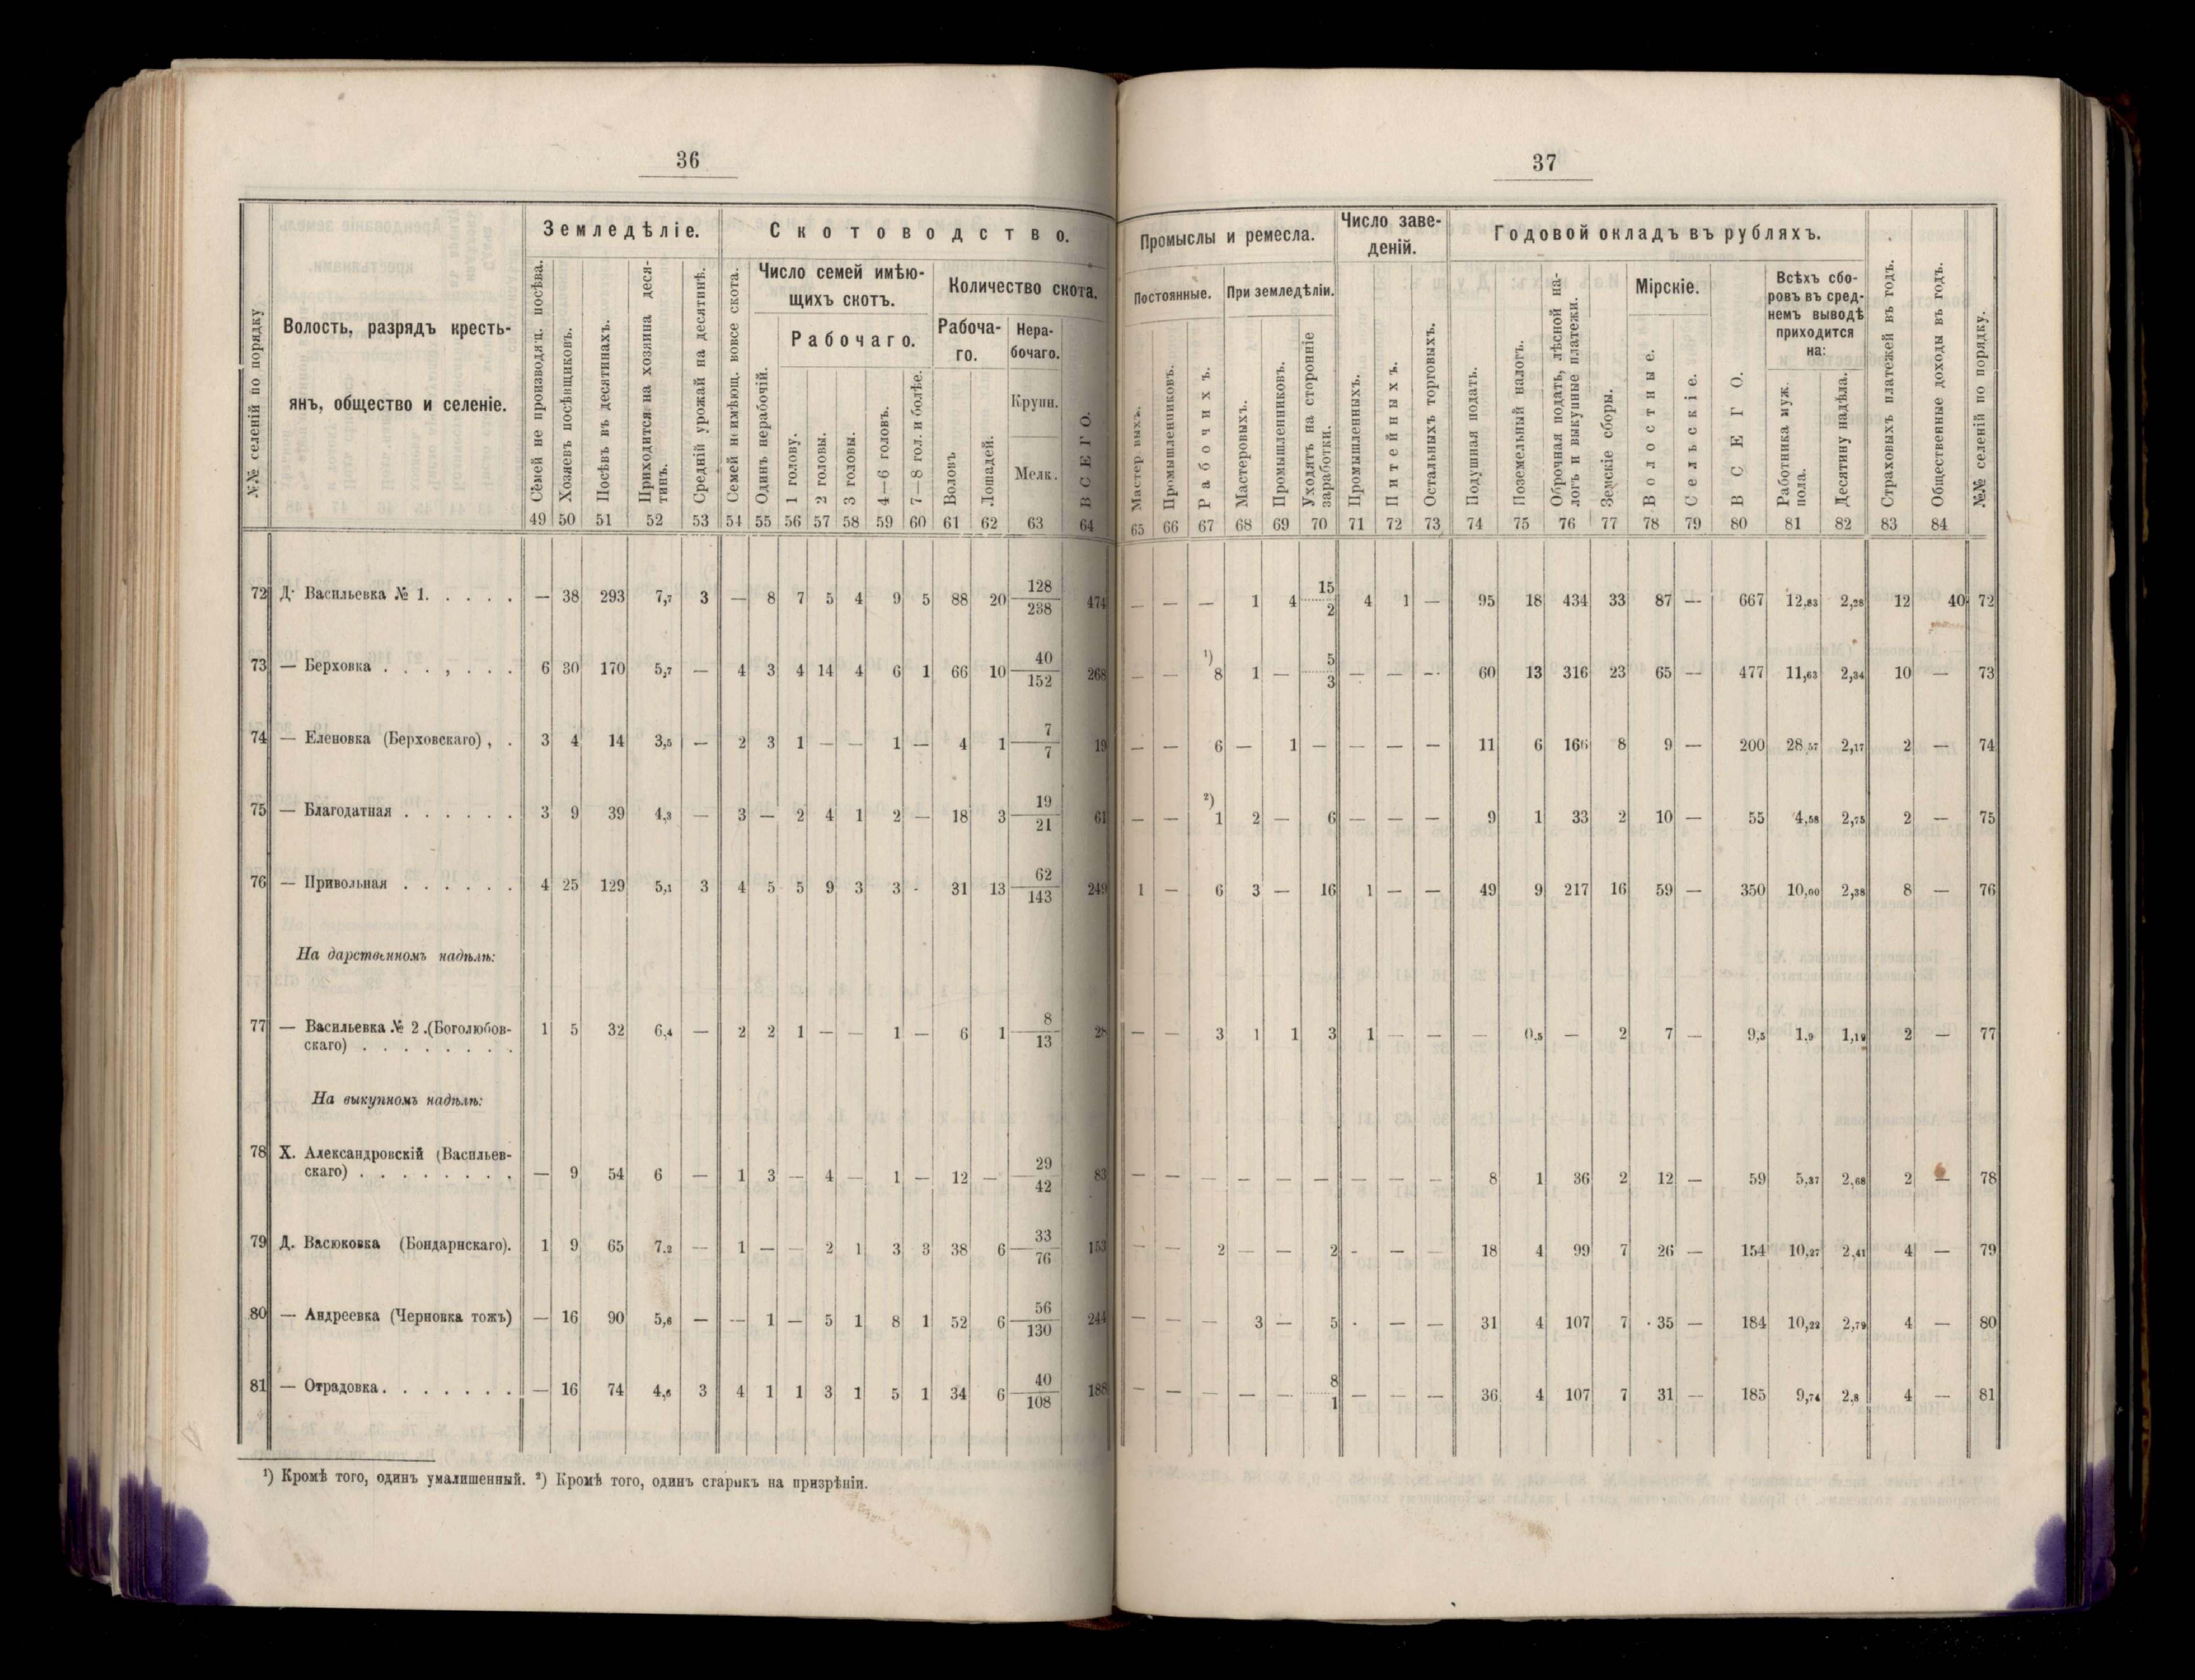 36
Земледѣліе. Скотоводство.
№№ селеній по порядку.
Волость, разрядъ кресть-
янъ, общество и селеніе.
Семей не производящ. посѣва.
Хозяевъ посѣвщиковъ.
Посѣвъ въ десятинахъ.
Приходится на хозяина деся-
тинъ.
Средній урожай на десятинѣ.
Семей не имѣющ. вовсе скота.
Число семей имѣю-
щихъ скотъ.
Одинъ нерабочій.
Рабочаго.
1 голову.
2 головы.
3 головы.
4—6 головъ.
7—8 гол. и болѣе.
Количество скота.
Рабоча-
го.
Воловъ
Лошадей.
Нера-
бочаго.
Крупн.
Мелк.
ВСЕГО.
49 50 51 52 53 54 55 56 57 58 59 60 61 62 63 64
72 Д. Васильевка № 1. . . . . — 38 293 7,7 3 — 8 7 5 4 9 5 88 20 128/238 474
73 — Берховка . . . , . . . 6 30 170 5,7 — 4 3 4 14 4 6 1 66 10 40/152 268
74 — Еленовка (Берховскаго) , . 3 4 14 3,5 — 2 3 1 — — 1 — 4 1 7/7 19
75 — Благодатная . . . . . . 3 9 39 4,3 — 3 — 2 4 1 2 — 18 3 19/21 61
76 — Привольная . . . . . . 4 25 129 5,1 3 4 5 5 9 3 3 - 31 13 62/143 249
На дарственномъ надѣлѣ:
77 — Васильевка № 2 .(Боголюбов-
скаго) . . . . . . . . 1 5 32 6,4 — 2 2 1 — — 1 — 6 1 8/13 28
На выкупномъ надѣлѣ:
78 Х. Александровскій (Васильев-
скаго) . . . . . . . . — 9 54 6 — 1 3 — 4 — 1 — 12 — 29/42 83
79 Д. Васюковка (Бондарнскаго). 1 9 65 7,2 — 1 — — 2 1 3 3 38 6 33/76 153
80 — Андреевка (Черновка тожъ) — 16 90 5,6 — — 1 — 5 1 8 1 52 6 56/130 244
81 — Отрадовка. . . . . . . — 16 74 4,6 3 4 1 1 3 1 5 1 34 6 40/108 188
¹) Кромѣ того, одинъ умалишенный. ²) Кромѣ того, одинъ старикъ на призрѣніи.
37
Промыслы и ремесла.
Число заве-
деній.
Годовой окладъ въ рубляхъ.
Постоянные. При земледѣліи.
Мастеровыхъ.
Промышленниковъ.
Рабочихъ.
Мастеровыхъ.
Промышленниковъ.
Уходятъ на сторонніе
заработки.
Промышленныхъ.
Питейныхъ.
Остальныхъ торговыхъ.
Подушная подать.
Поземельный налогъ.
Оброчная подать, лѣсной на-
логъ и выкупные платежи.
Земскіе сборы.
Мірскіе.
Волостные.
Сельскіе.
ВСЕГО.
Всѣхъ сбо-
ровъ въ сред-
немъ выводѣ
приходится
на:
Работника муж.
пола.
Десятину надѣла.
Страховыхъ платежей въ годъ.
Общественные доходы въ годъ.
№№ селеній по порядку.
65 66 67 68 69 70 71 72 73 74 75 76 77 78 79 80 81 82 83 84
— — — 1 4 15/2 4 1 — 95 18 434 33 87 — 667 12,83 2,28 12 40 72
— — ¹) 8 1 — 5/3 — — — 60 13 316 23 65 — 477 11,63 2,34 10 — 73
— — 6 — 1 — — — — 11 6 166 8 9 — 200 28,57 2,17 2 — 74
— — ²) 1 2 — 6 — — — 9 1 33 2 10 — 55 4,58 2,75 2 — 75
1 — 6 3 — 16 1 — — 49 9 217 16 59 — 350 10,00 2,38 8 — 76
— — 3 1 1 3 1 — — — 0,5 — 2 7 — 9,5 1,9 1,19 2 — 77
— — — — — — — — — 8 1 36 2 12 — 59 5,37 2,68 2 — 78
— — 2 — — 2 - — — 18 4 99 7 26 — 154 10,27 2,41 4 — 79
— — — 3 — 5 - — — 31 4 107 7 35 — 184 10,22 2,79 4 — 80
— — — — — 8/1 — — — 36 4 107 7 31 — 185 9,74 2,8 4 — 81